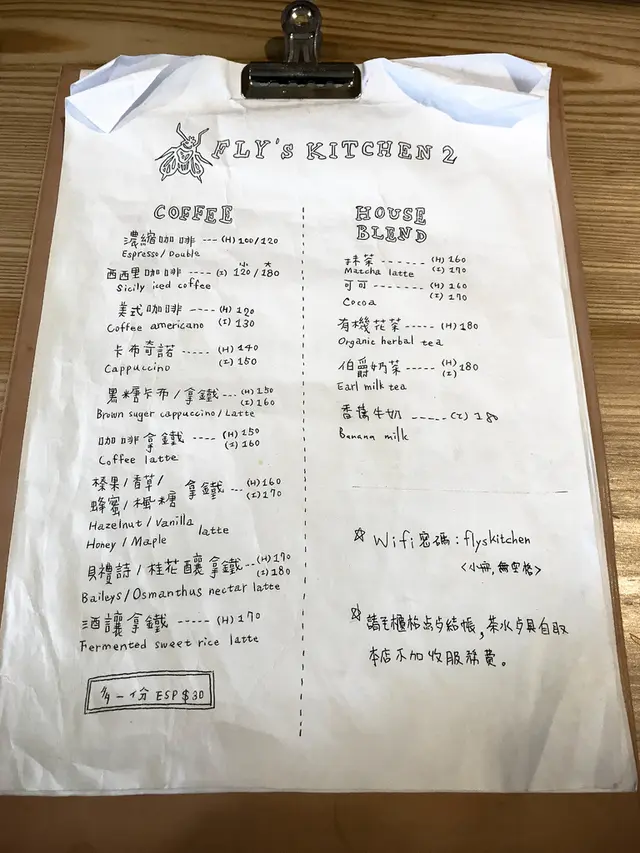 FLY's KITCHEN 2
COFFEE
濃縮咖啡 --- (H) 100/120
Espresso / Double
小 大
西西里咖啡 ---- (I) 120/180
Sicily iced coffee
美式咖啡 ---- (H) 120
Coffee americano (I) 130
卡布奇諾 ---- (H) 140
Cappuccino (I) 150
黑糖卡布/拿鐵 --- (H) 150
(I) 160
Brown suger cappuccino / Latte
咖啡拿鐵 ---- (H) 150
(I) 160
Coffee latte
榛果/香草/
蜂蜜/楓糖 拿鐵 --- (H) 160
(I) 170
Hazelnut / Vanilla
Honey / Maple latte
貝禮詩/桂花釀拿鐵 --- (H) 170
(I) 180
Baileys / Osmanthus nectar latte
酒讓拿鐵 ----- (H) 170
Fermented sweet rice latte
加一份 ESP $30
HOUSE
BLEND
抹茶 ------- (H) 160
Matcha latte (I) 170
可可 ------- (H) 160
(I) 170
Cocoa
有機花茶 ----- (H) 180
Organic herbal tea
伯爵奶茶 ----- (H) 180
(I)
Earl milk tea
香蕉牛奶 ----- (I) 180
Banana milk
☆ Wifi密碼：flyskitchen
<小冊,無空格>
☆ 請至櫃枱点歺結帳，茶水歺具自取
本店不加收服務費。